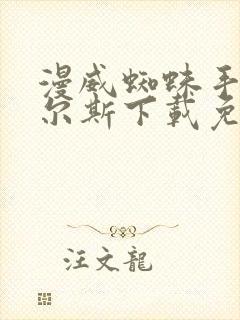 漫威蜘蛛手
尔斯下载免
汪文龍